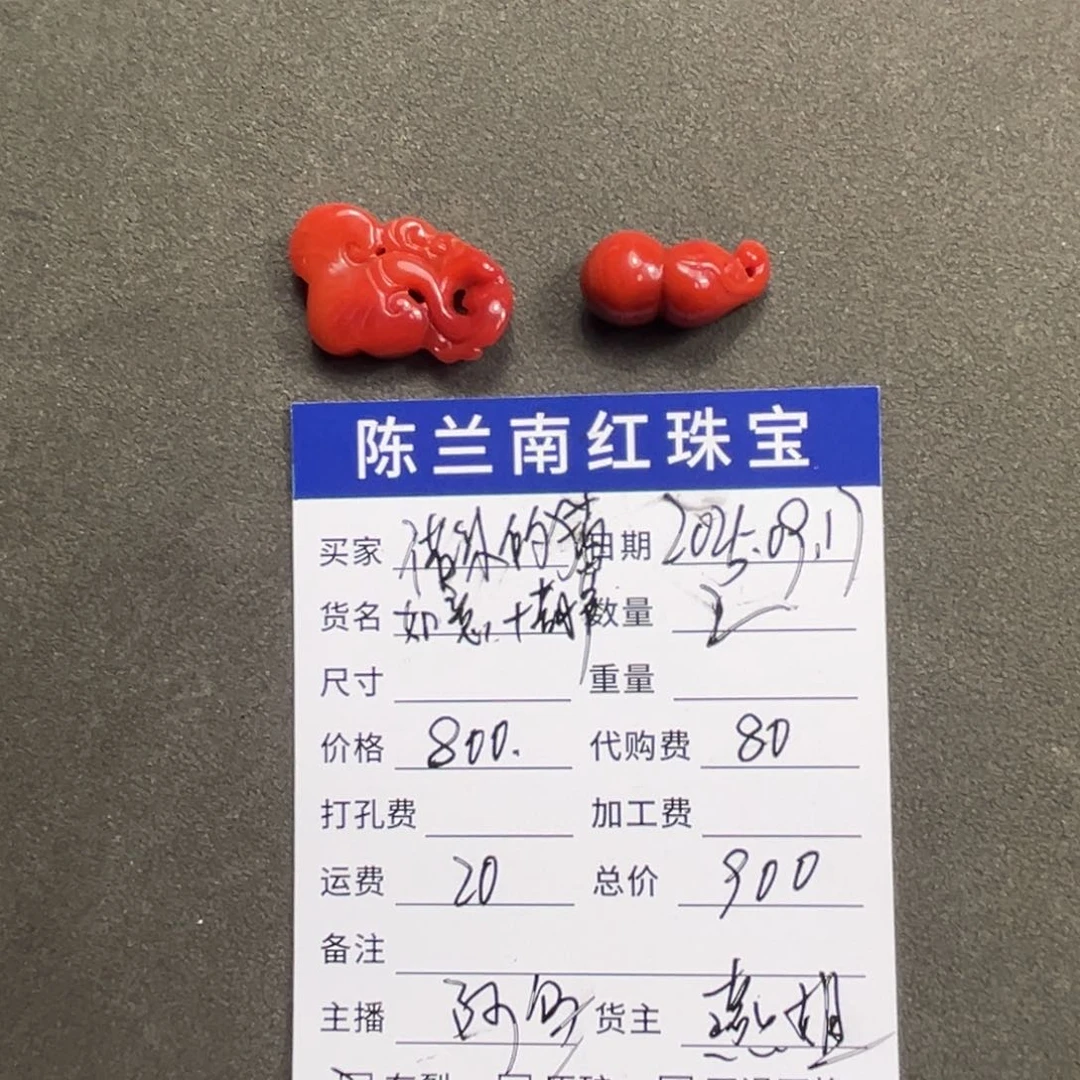 陈兰南红珠宝
买家 的猫 日期 2025.09.17
货名 如意+葫芦 数量 2
尺寸 重量
价格 800. 代购费 80
打孔费 加工费
运费 20 总价 900
备注
主播 阿 货主